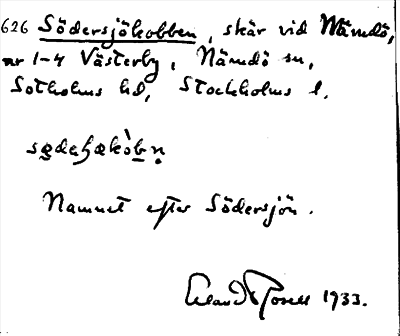 626 Södersjökobben, skär vid Nämdö,
nr 1-4 Västerby, Nämdö sn,
Sotholms hd, Stockholms l.
Namnet efter Södersjön.
Erland Rosell 1933.